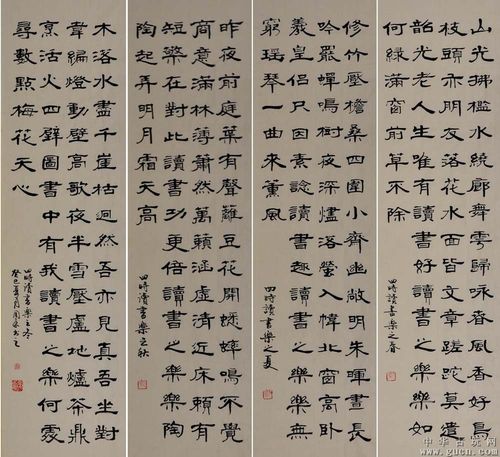 山光拂檻水繞廊舞雩歸詠春風香好鳥
枝頭亦朋友落花水面皆文章蹉跎莫遣
韶光老人生唯有讀書好讀書之樂樂如
何綠滿窗前草不除
四時讀書樂之春
修竹壓檐桑四圍小齋幽敞明朱暉晝長
吟罷蟬鳴樹夜深燼落螢入幃北窗高臥
羲皇侶只因素諗讀書趣讀書之樂樂無
窮瑤琴一曲來薰風
四時讀書樂之夏
昨夜前庭葉有聲籬豆花開蟋蟀鳴不覺
商意滿林薄蕭然萬籟涵虛清近床賴有
短檠在對此讀書功更倍讀書之樂樂陶
陶起弄明月霜天高
四時讀書樂之秋
木落水盡千崖枯迥然吾亦見真吾坐對
韋編燈動壁高歌夜半雪壓廬地爐茶鼎
烹活火四壁圖書中有我讀書之樂何處
尋數點梅花天心
四時讀書樂之冬
癸巳夏月
中华古玩网
www.gucn.com